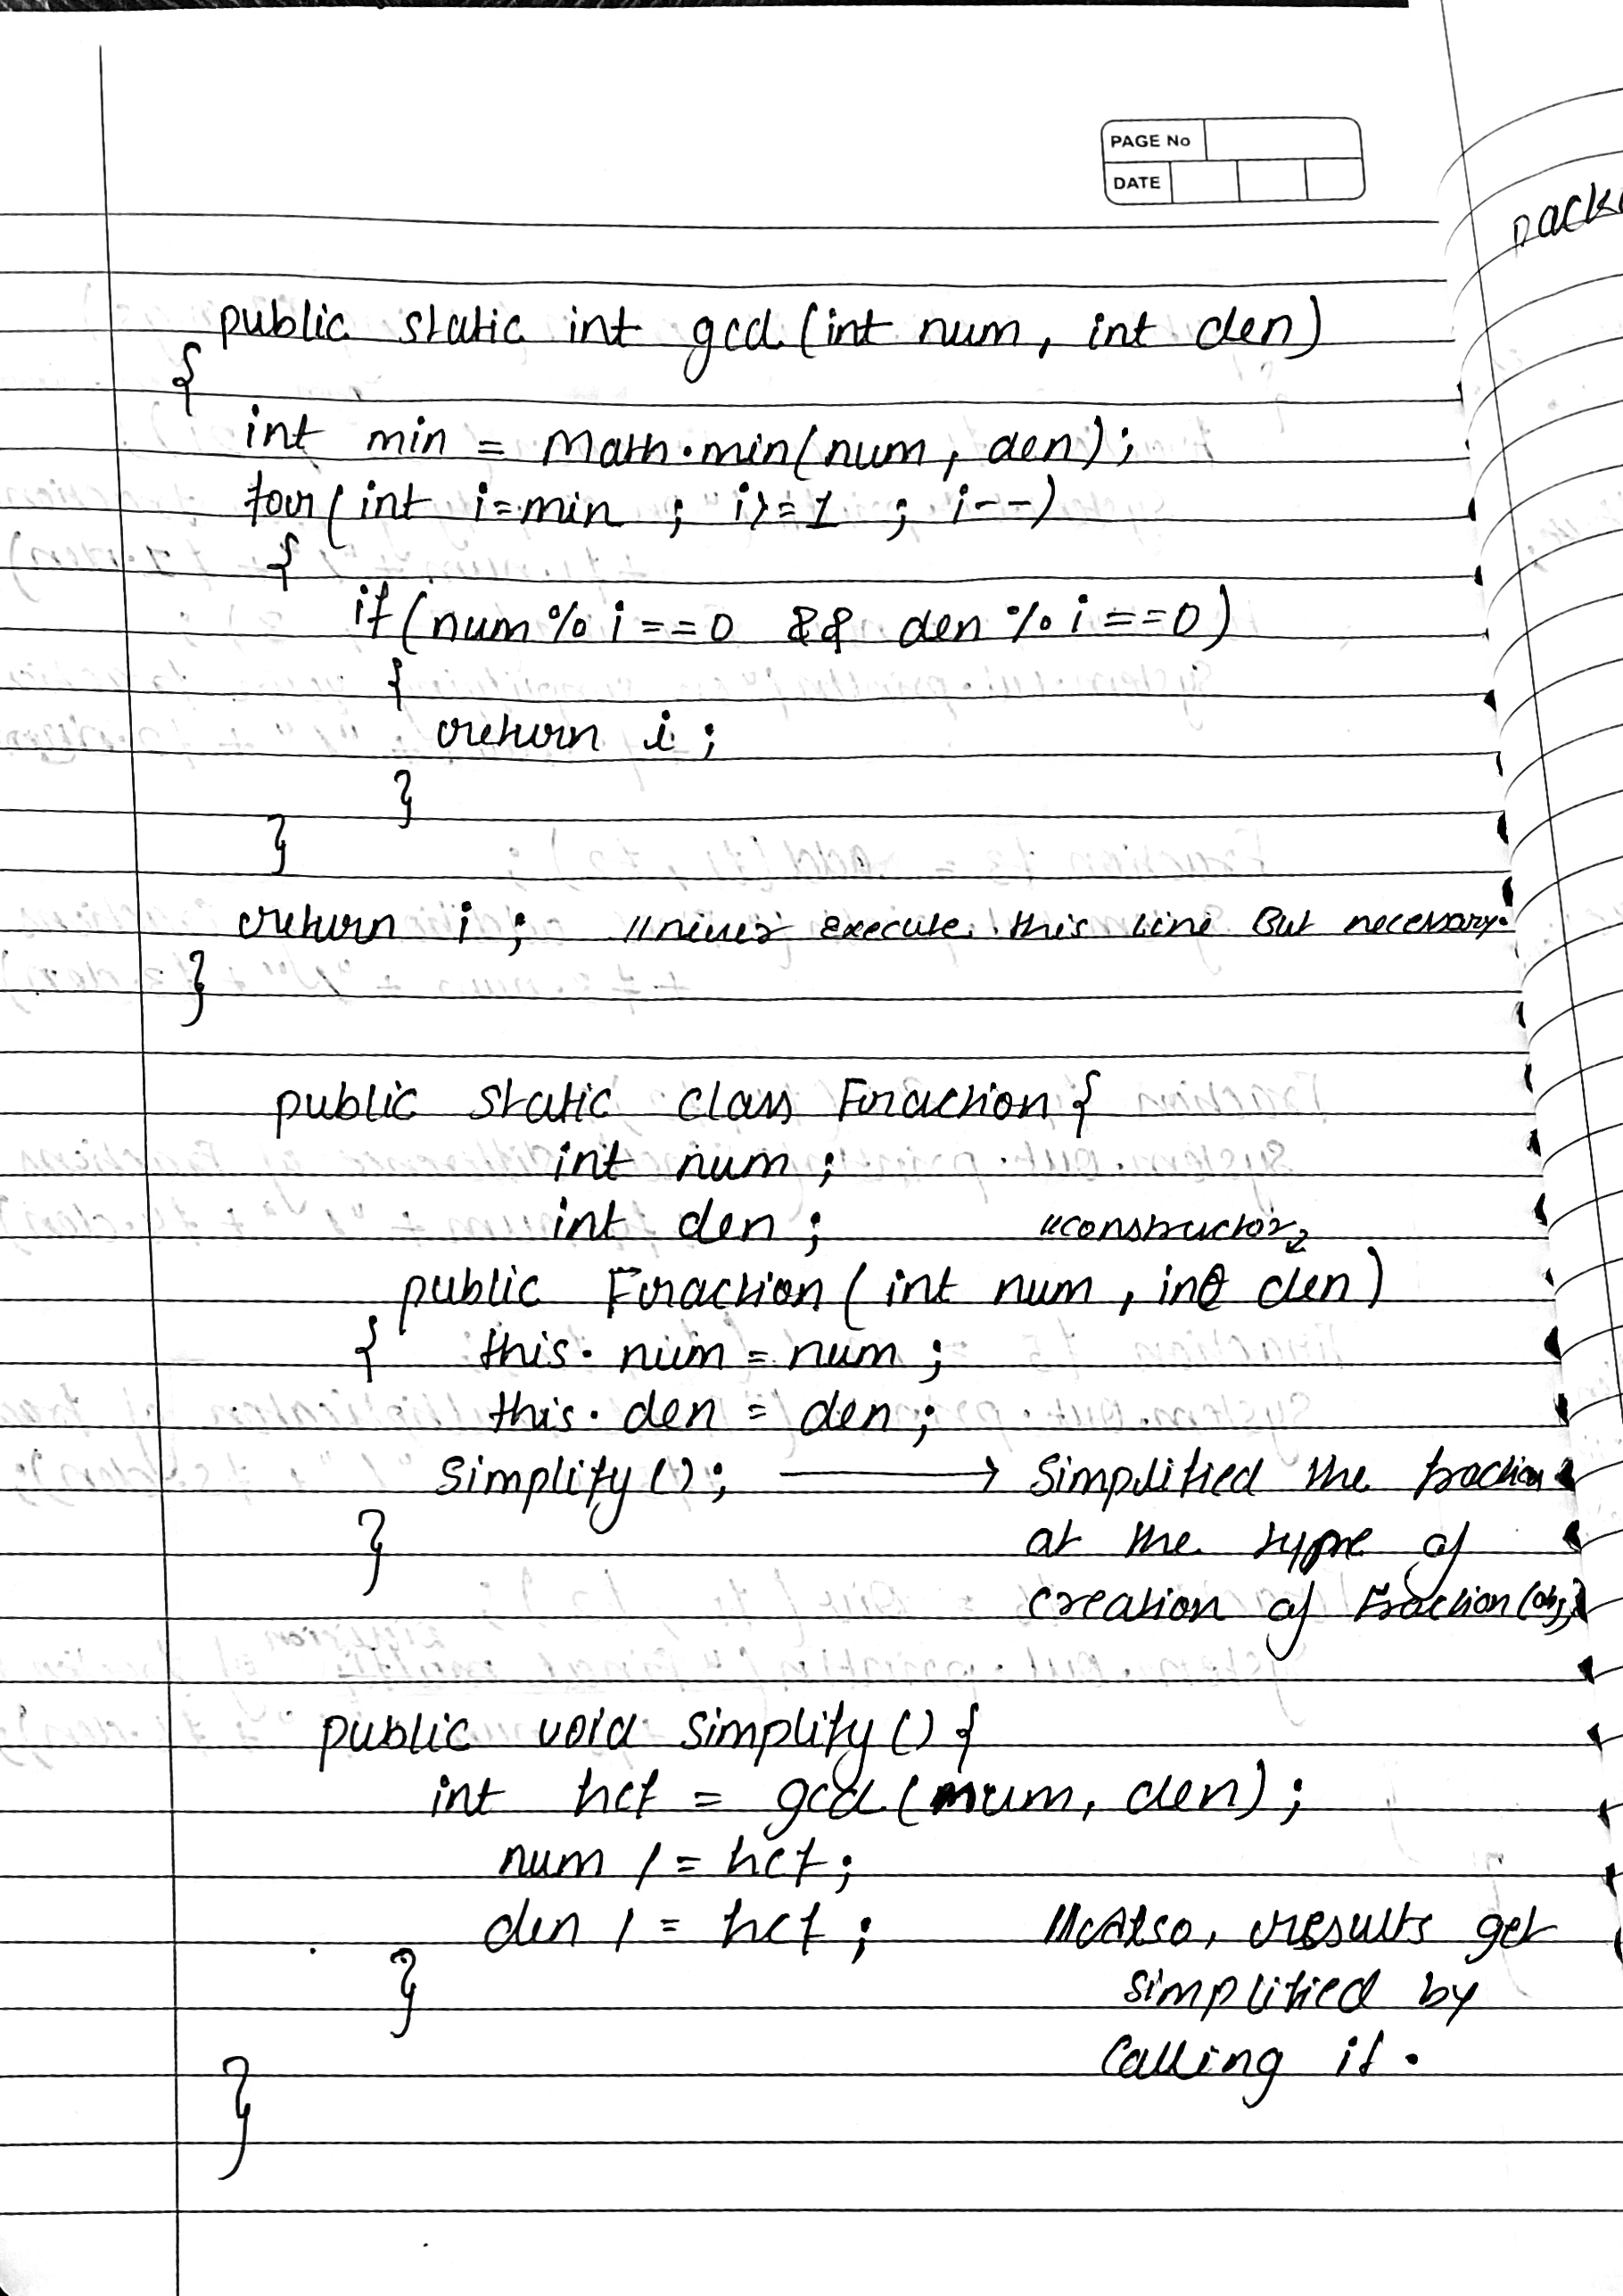 PAGE No
DATE
pack
public static int gcd (int num, int den)
{
int min = Math.min(num, den);
for(int i=min ; i>=1 ; i--)
{
if(num%i==0 && den%i==0)
{
return i;
}
}
return i; //never execute this line But necessary.
}
public static class Fraction{
int num;
int den; //constructor
public Fraction(int num, int den)
{ this.num = num;
this.den = den;
simplify(); → Simplified the fraction
at the type of
creation of Fraction(obj)
}
public void simplify(){
int hcf = gcd(num, den);
num /= hcf;
den /= hcf; //Also, results get
simplified by
}
calling it.
}